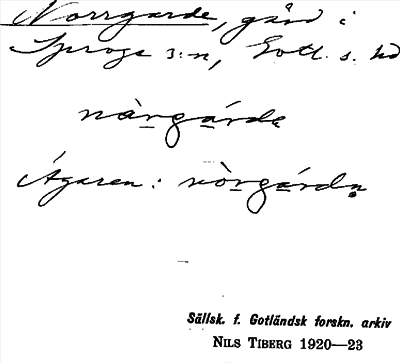 Norrgarde, gård i
Sproge s:n, Gotl. s. hd
nàrgárde
Ägaren: nòrgárdn
Sällsk. f. Gotländsk forskn. arkiv
NILS TIBERG 1920—23